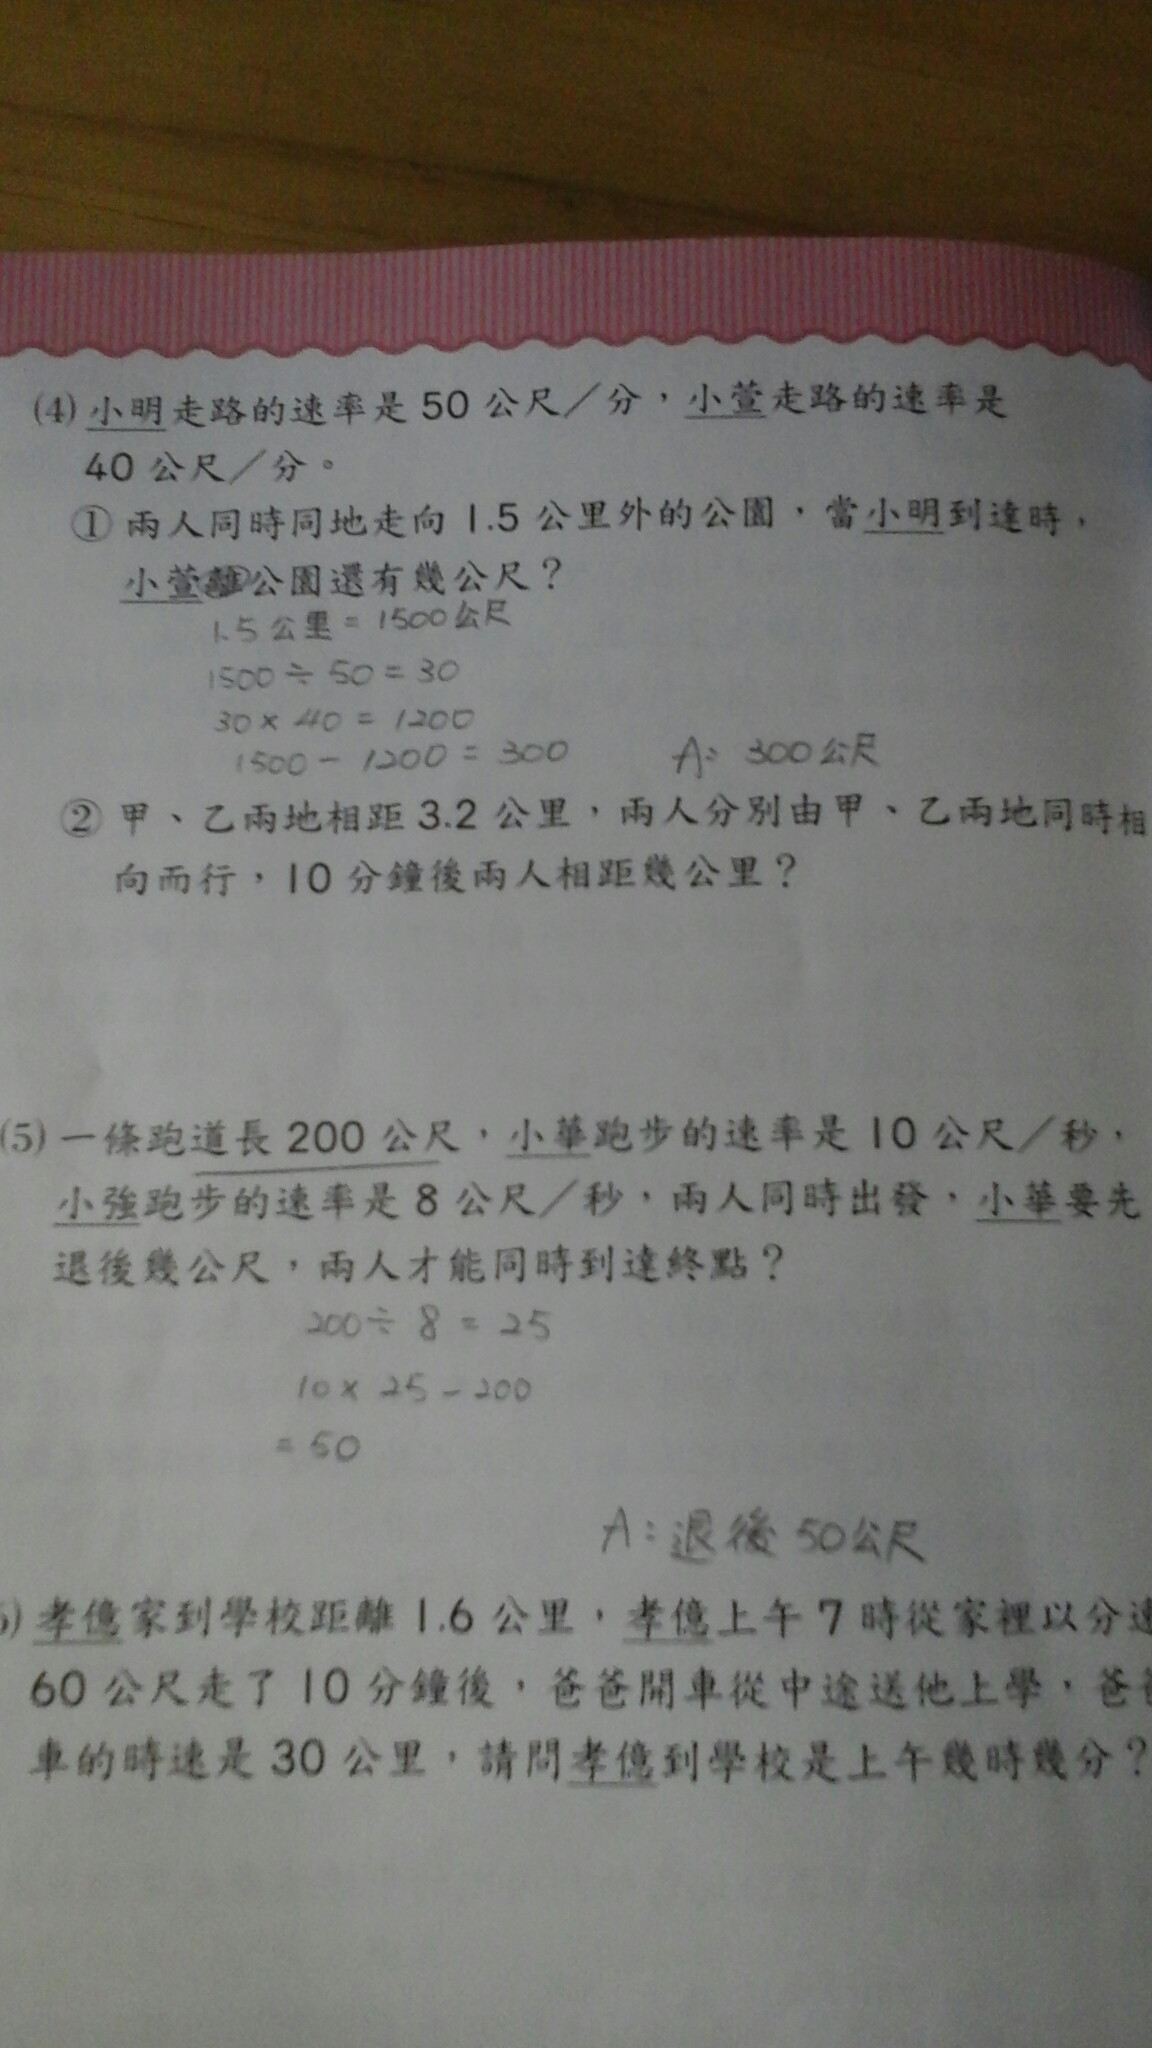 (4) 小明走路的速率是 50 公尺／分，小萱走路的速率是
40 公尺／分。
① 兩人同時同地走向 1.5 公里外的公園，當小明到達時，
小萱離公園還有幾公尺？
1.5 公里 = 1500 公尺
1500 ÷ 50 = 30
30 × 40 = 1200
1500 - 1200 = 300
A: 300 公尺
② 甲、乙兩地相距 3.2 公里，兩人分別由甲、乙兩地同時相
向而行，10 分鐘後兩人相距幾公里？
(5) 一條跑道長 200 公尺，小華跑步的速率是 10 公尺／秒，
小強跑步的速率是 8 公尺／秒，兩人同時出發，小華要先
退後幾公尺，兩人才能同時到達終點？
200 ÷ 8 = 25
10 × 25 - 200
= 50
A: 退後 50 公尺
) 孝億家到學校距離 1.6 公里，孝億上午 7 時從家裡以分速
60 公尺走了 10 分鐘後，爸爸開車從中途送他上學，爸
車的時速是 30 公里，請問孝億到學校是上午幾時幾分？